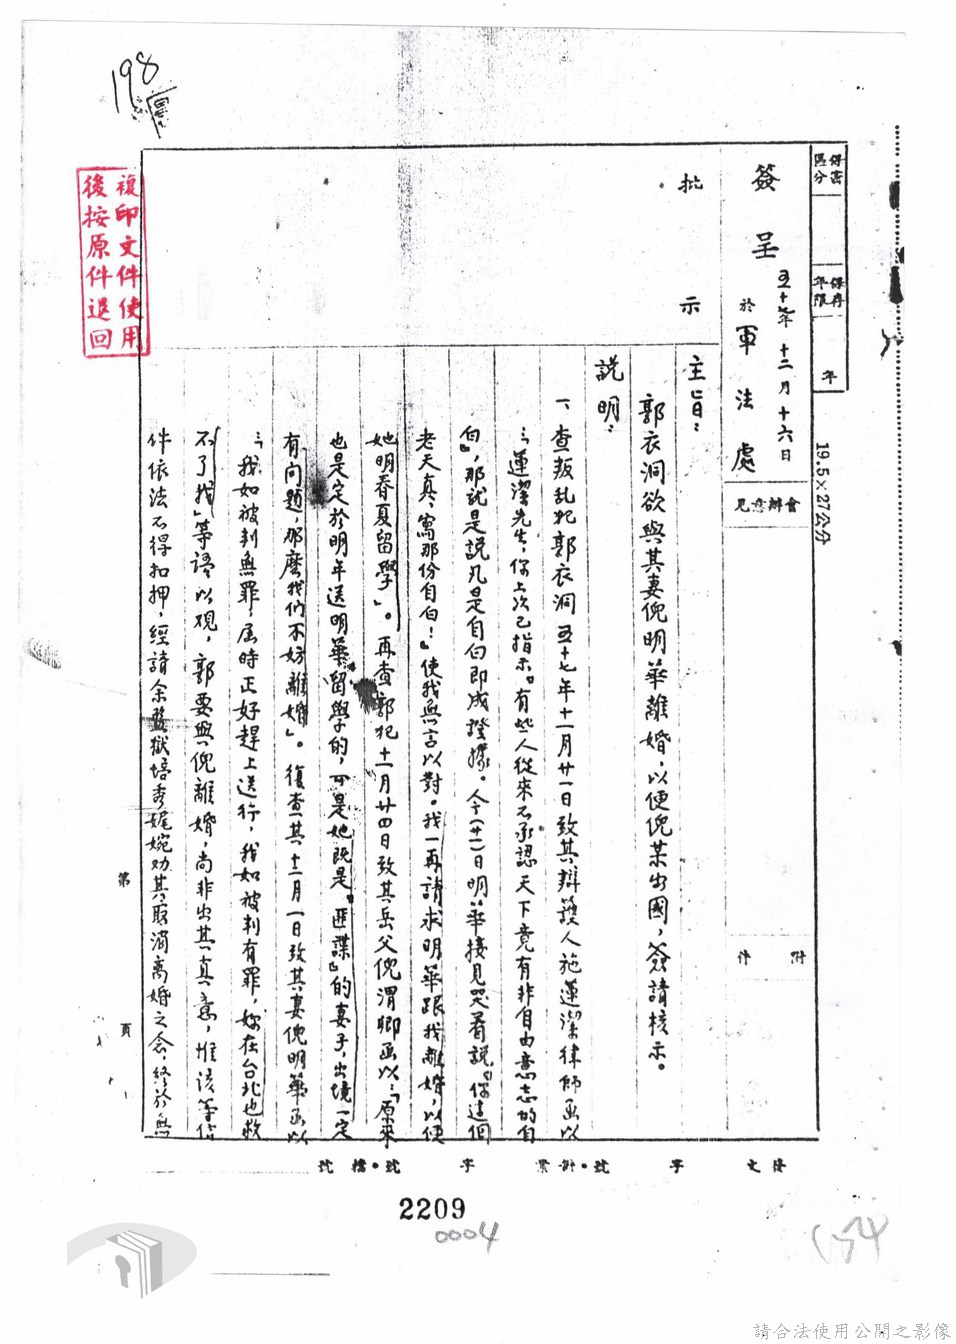 198
複印文件使用
後按原件退回
保密
區分
保存
年限
年
19.5×27公分
簽呈
五十七年十二月十六日
於軍法處
會辦意見
附件
批示
主旨：
郭衣洞欲與其妻倪明華離婚，以便倪某出國，簽請核示。
說明：
一、查叛乱犯郭衣洞五十七年十一月廿一日致其辯護人施運潔律師函以
：「運潔先生，你上次已指示『有些人從來不承認天下竟有非自由意志的自
白』，那就是說凡是自白即成證據。今(廿一)日明華接見哭着說『你這個
老天真，寫那份自白！』使我無言以對。我一再請求明華跟我離婚，以便
她明春夏留學」。再查郭犯十一月廿四日致其岳父倪渭卿函以：「原來
也是定於明年送明華留學的，可是她既是『匪諜』的妻子，出境一定
有問題，那麼我們不妨離婚」。復查其十二月一日致其妻倪明華函以
：「我如被判無罪，屆時正好趕上送行，我如被判有罪，妳在台北也救
不了我」等語以观，郭要與倪離婚，尚非出其真意，惟該等信
件依法不得扣押，經請余監獄培秀娓婉劝其取消离婚之念，終於無
第
頁
收文
字
號
附業
字
號
檔
號
2209
0004
請合法使用公開之影像